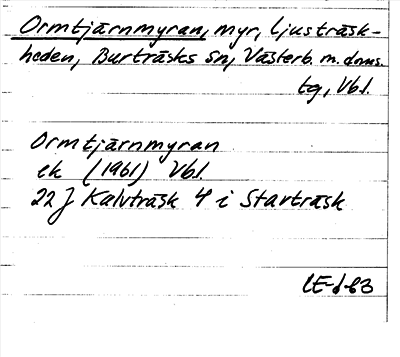 Ormtjärnmyran, myr, Ljusträsk-
heden, Burträsks sn, Västerb. m. doms.
tg, Vbl.
Ormtjärnmyran
ek (1961) Vbl.
22 J Kalvträsk 4 i Starträsk